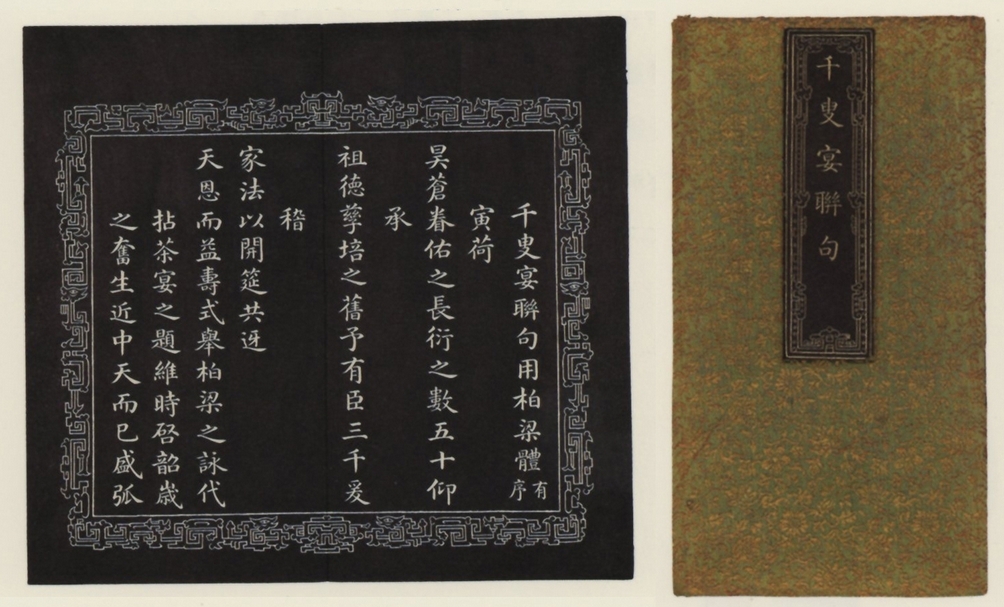 千叟宴聯句
千叟宴聯句用柏梁體有序
寅荷
昊蒼眷佑之長衍之數五十仰
承
祖德孳培之舊予有臣三千爰
稽
家法以開筵共迓
天恩而益壽式舉柏梁之詠代
拈茶宴之題維時啓韶歲
之奮生近中天而已盛弧